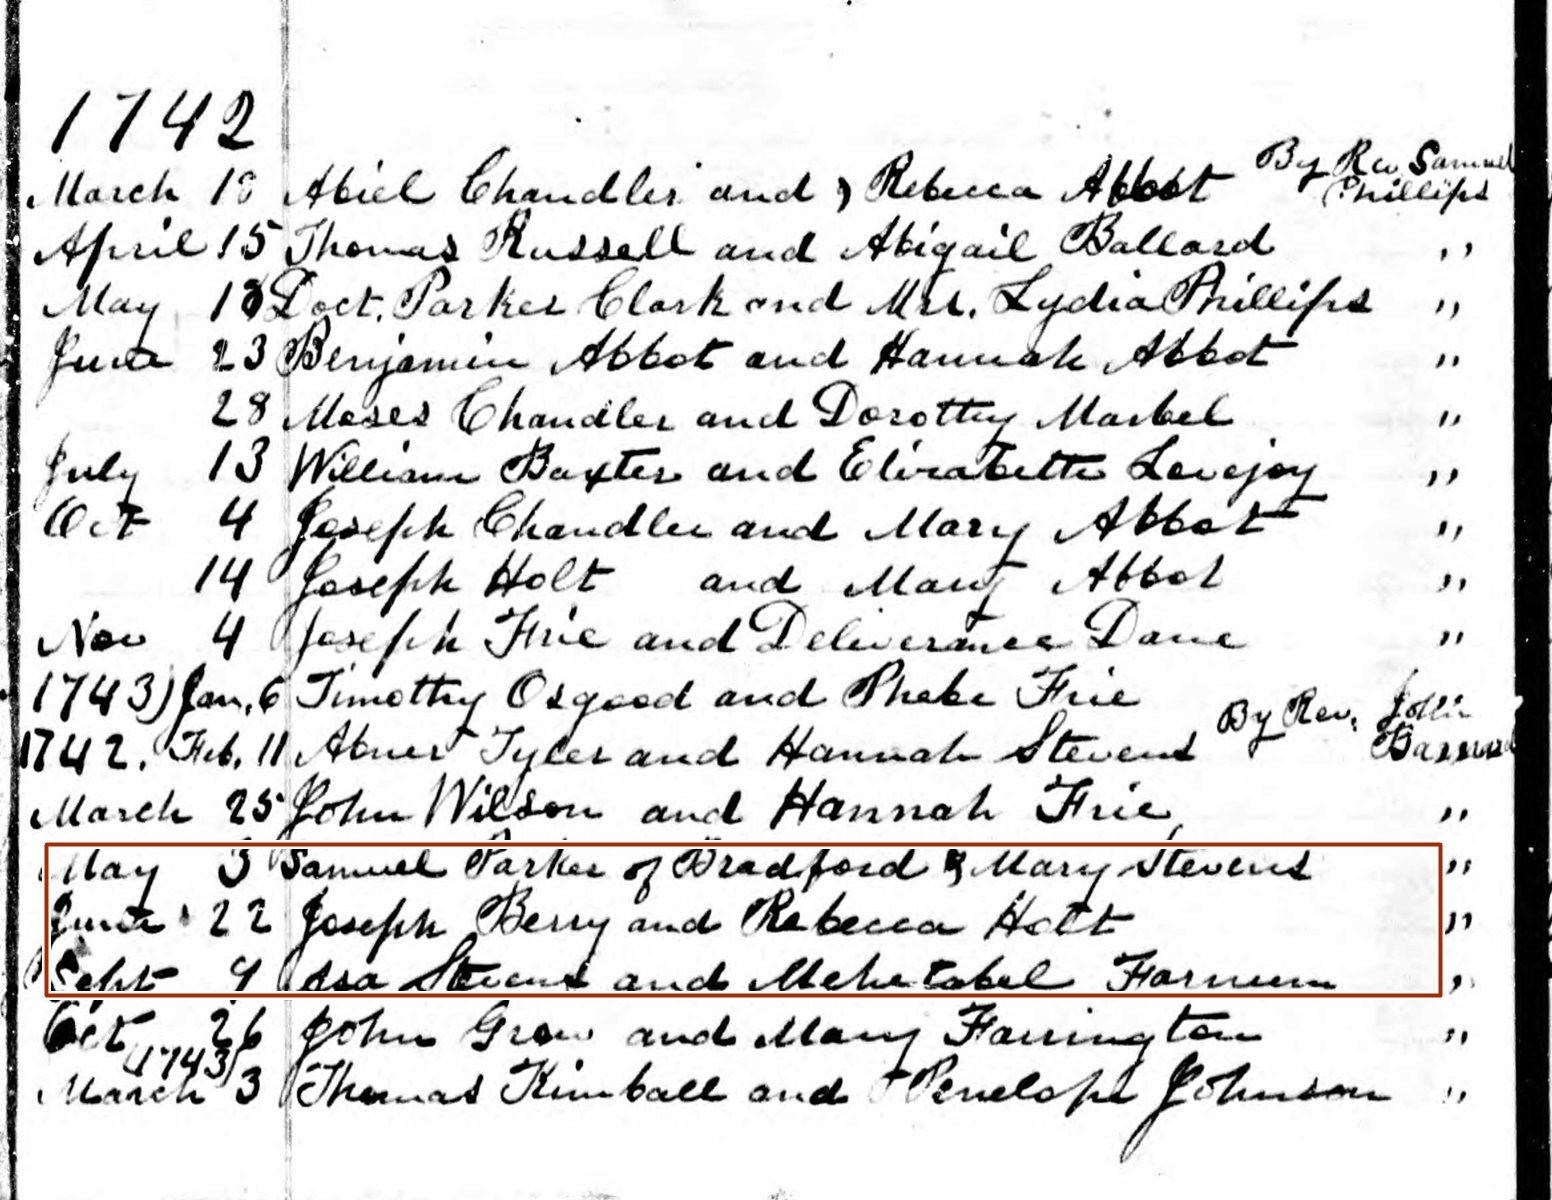 1742
March 18 Abiel Chandler and Rebecca Abbot By Rev Samuel Phillips
April 15 Thomas Russell and Abigail Ballard "
May 18 Doct. Parker Clark and Mrs. Lydia Phillips "
June 23 Benjamin Abbot and Hannah Abbot "
28 Moses Chandler and Dorothy Marbel "
July 13 William Baxter and Elizabeth Lovejoy "
Oct 4 Joseph Chandler and Mary Abbot "
14 Joseph Holt and Mary Abbot "
Nov 4 Joseph Frie and Deliverance Dane "
1743) Jan, 6 Timothy Osgood and Phebe Frie
1742. Feb. 11 Abner Tyler and Hannah Stevens By Rev. John Barnard
March 25 John Wilson and Hannah Frie, "
May 3 Samuel Parker of Bradford & Mary Stevens "
June 22 Joseph Berry and Rebecca Holt "
Sept 9 Asa Stevens and Mehetabel Farnum "
Oct 26 John Grow and Mary Farrington "
(1743)
March 3 Thomas Kimball and Penelope Johnson "